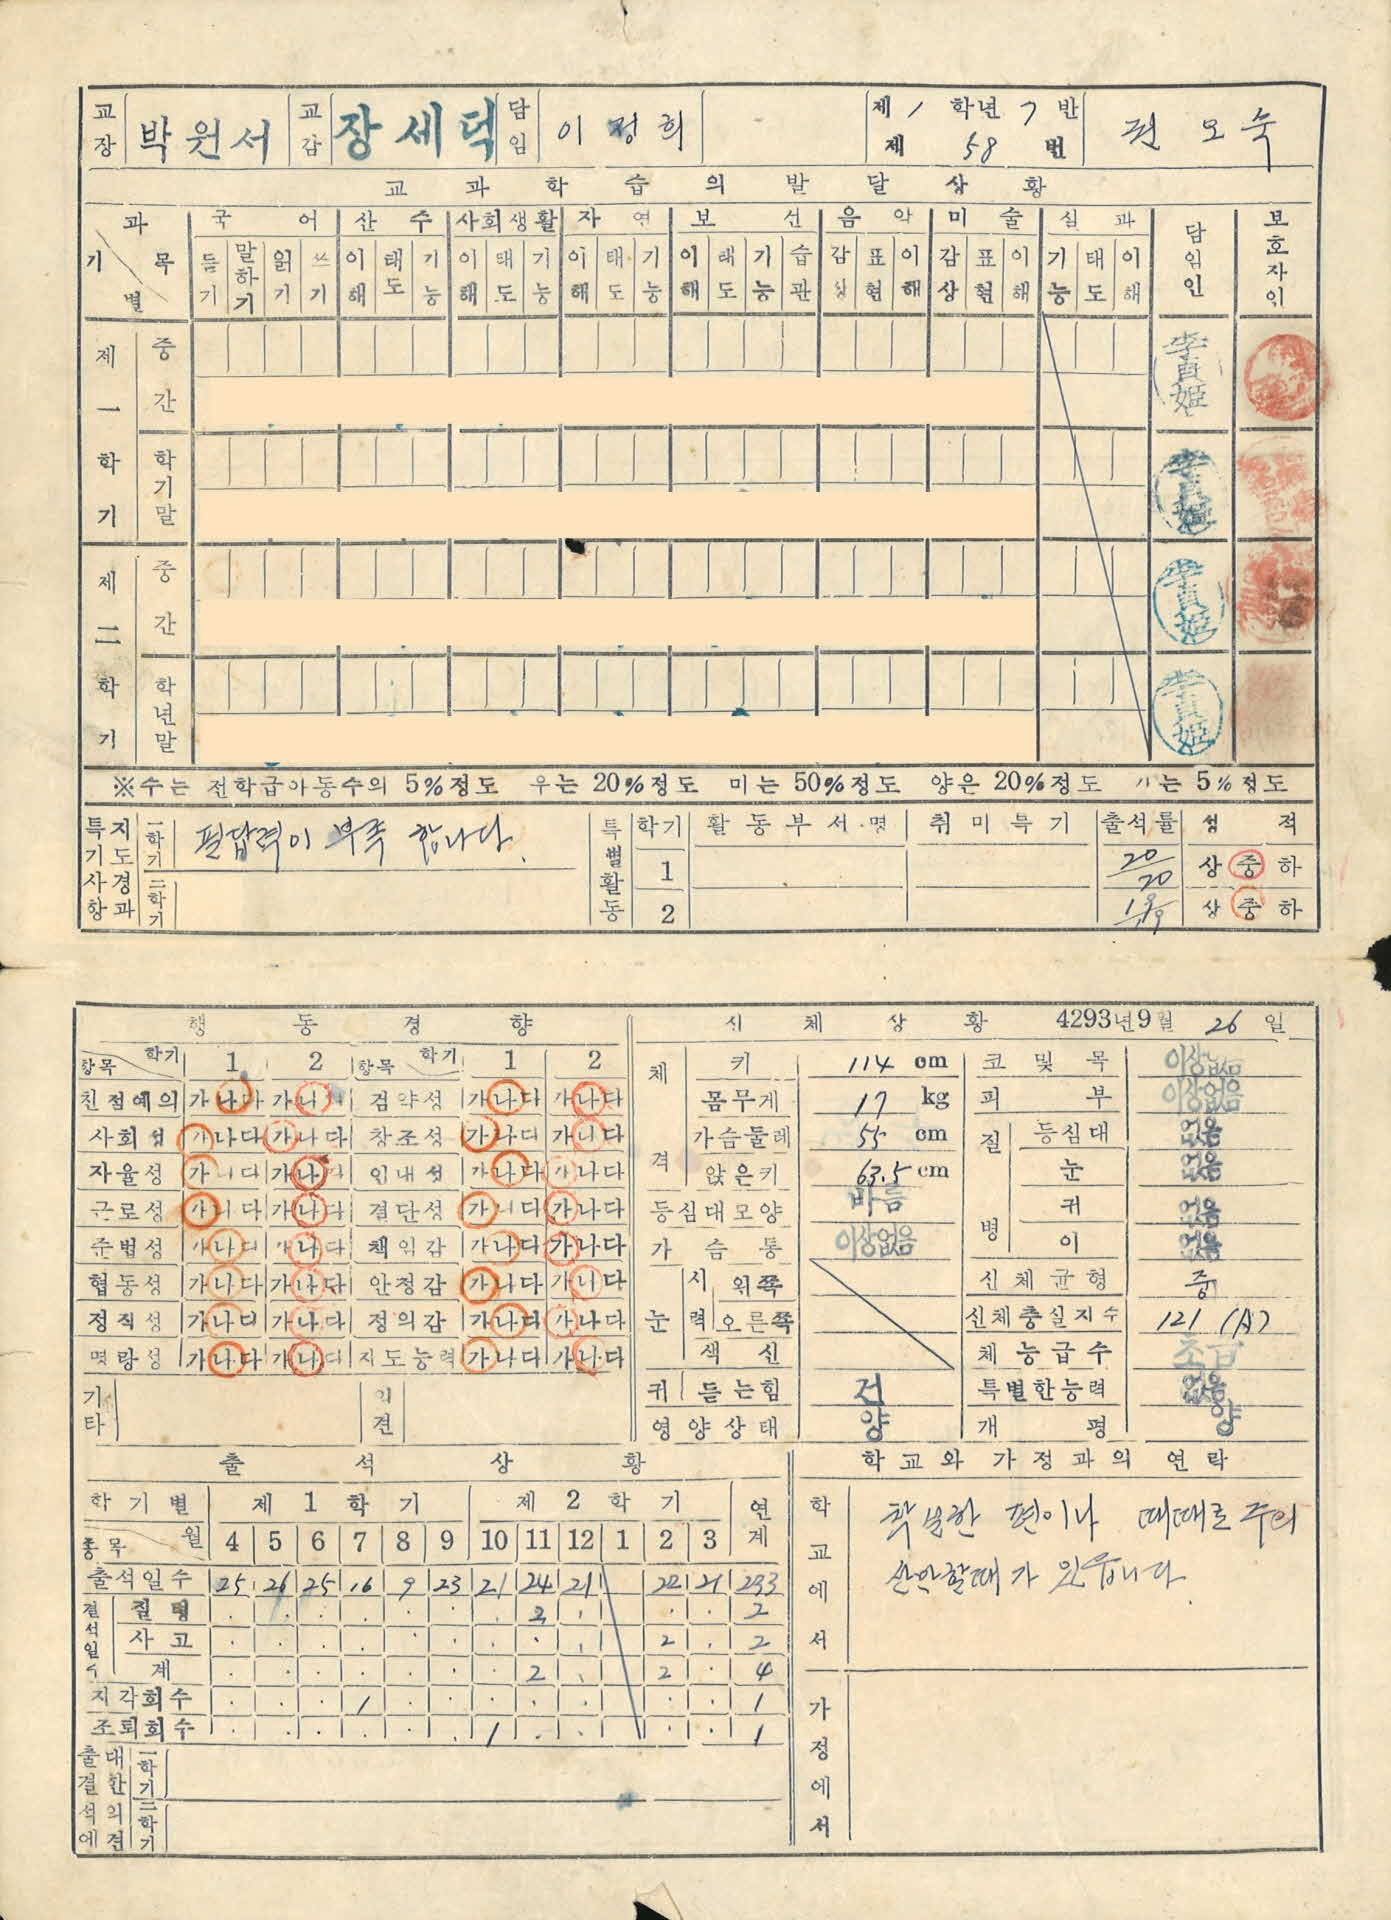 교장 박원서 교감 장세덕 담임 이정희 제1학년 7반 제58번 권오숙
교과학습의발달상황
과목 기별 국어 산수 사회생활 자연 보선 음악 미술 실과 담임인 보호자인
듣기 말하기 읽기 쓰기 이해 태도 기능 이해 태도 기능 이해 태도 기능 이해 태도 기능 습관 감상 표현 이해 감상 표현 이해 기능 태도 이해
제一학기 중간
李貞姬
학기말
李貞姬
제二학기 중간
李貞姬
학년말
李貞姬
※수는 전학급아동수의 5%정도 우는 20%정도 미는 50%정도 양은 20%정도 가는 5%정도
특기사항 지도경과 一학기 필답력이 부족 합니다. 특별활동 학기 활동부서명 취미특기 출석률 성적
1 20/20 상 중 하
二학기 2 19/19 상 중 하
행동경향
항목 학기 1 2 항목 학기 1 2
친절예의 가나다 가나다 검약성 가나다 가나다
사회성 가나다 가나다 창조성 가나다 가나다
자율성 가나다 가나다 인내성 가나다 가나다
근로성 가나다 가나다 결단성 가나다 가나다
준법성 가나다 가나다 책임감 가나다 가나다
협동성 가나다 가나다 안정감 가나다 가나다
정직성 가나다 가나다 정의감 가나다 가나다
명랑성 가나다 가나다 지도능력 가나다 가나다
기타 의견
신체상황 4293년9월 26일
체격 키 114 cm 코및목 이상없음
몸무게 17 kg 피부 이상없음
가슴둘레 55 cm 질병 등심대 없음
앉은키 63.5 cm 눈 없음
등심대모양 바름 귀 없음
가슴통 이상없음 이 없음
눈 시력 왼쪽 신체균형 중
오른쪽 신체충실지수 121 (A)
색신 체능급수 초급
귀 듣는힘 건 특별한능력 없음
영양상태 양 개평 양
출석상황
학기별 제1학기 제2학기 연계
종목 월 4 5 6 7 8 9 10 11 12 1 2 3
출석일수 25 26 25 16 9 23 21 24 21 22 21 233
결석일수 질병 2 2
사고 2 2
계 2 2 4
지각회수 1 1
조퇴회수 1 1
출결석에 대한의견 一학기
二학기
학교와 가정과의 연락
학교에서 착실한 편이나 때때로 주의
산만할때가 있습니다.
가정에서